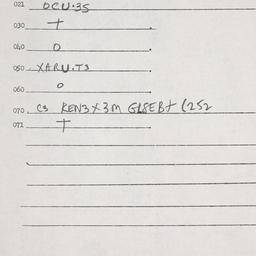 021 DCU.35
030 +
040 0
050 XARU.T3
060 0
070 C3 KEN3X3M G18EB+ (252
071 +